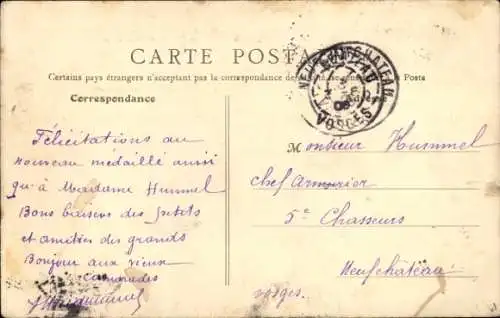 CARTE POSTA
Certains pays étrangers n'acceptant pas la correspondance de Posta
NEUFCHATEAU
VOSGES
Correspondance
Félicitations au
nouveau médaillé aussi
qu'à Madame Hummel
Bons baisers des petits
et amitiés des grands
Bonjour aux vieux
Camarades
Monsieur Hummel
chef armurier
5e Chasseurs
Neufchateau
Vosges.